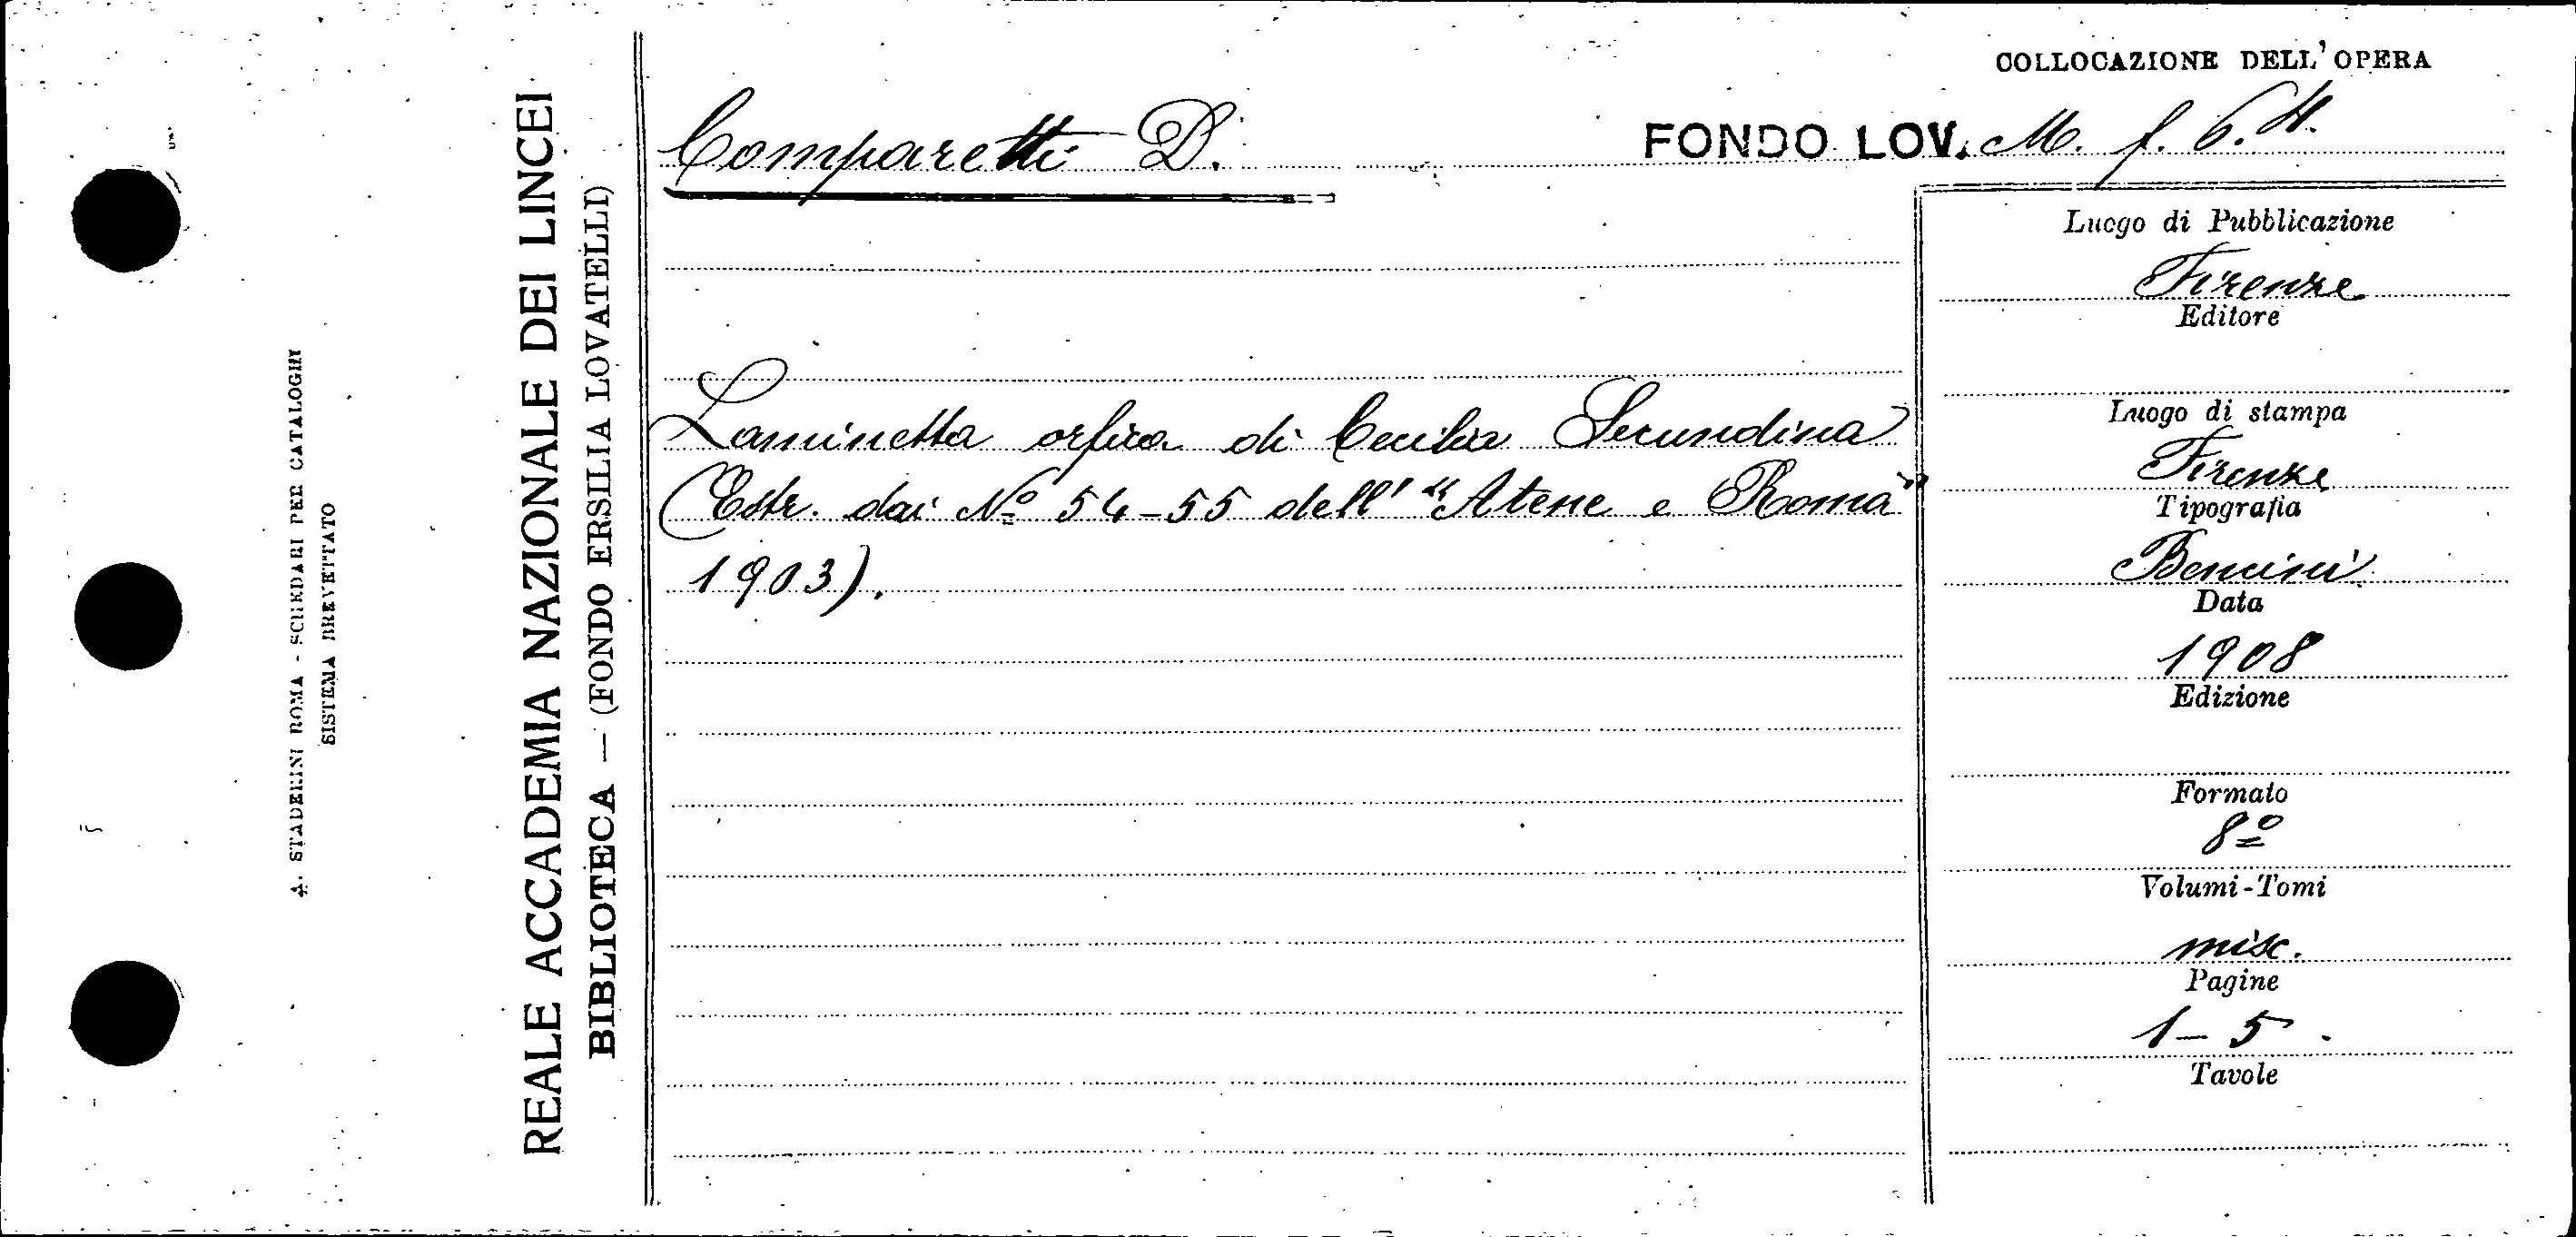 COLLOCAZIONE DELL'OPERA
Comparetti D.
FONDO LOV. M. f. 6. H.
Laminetta orfica di Cecilia Secundina
(Estr. dai Nº 54-55 dell' "Atene e Roma"
1903).
Luogo di Pubblicazione
Firenze
Editore
Luogo di stampa
Firenze
Tipografia
Bencini
Data
1908
Edizione
Formato
8º
Volumi-Tomi
misc.
Pagine
1-5.
Tavole
REALE ACCADEMIA NAZIONALE DEI LINCEI
BIBLIOTECA — (FONDO ERSILIA LOVATELLI)
A. STADERINI ROMA - SCHEDARI PER CATALOGHI
SISTEMA BREVETTATO